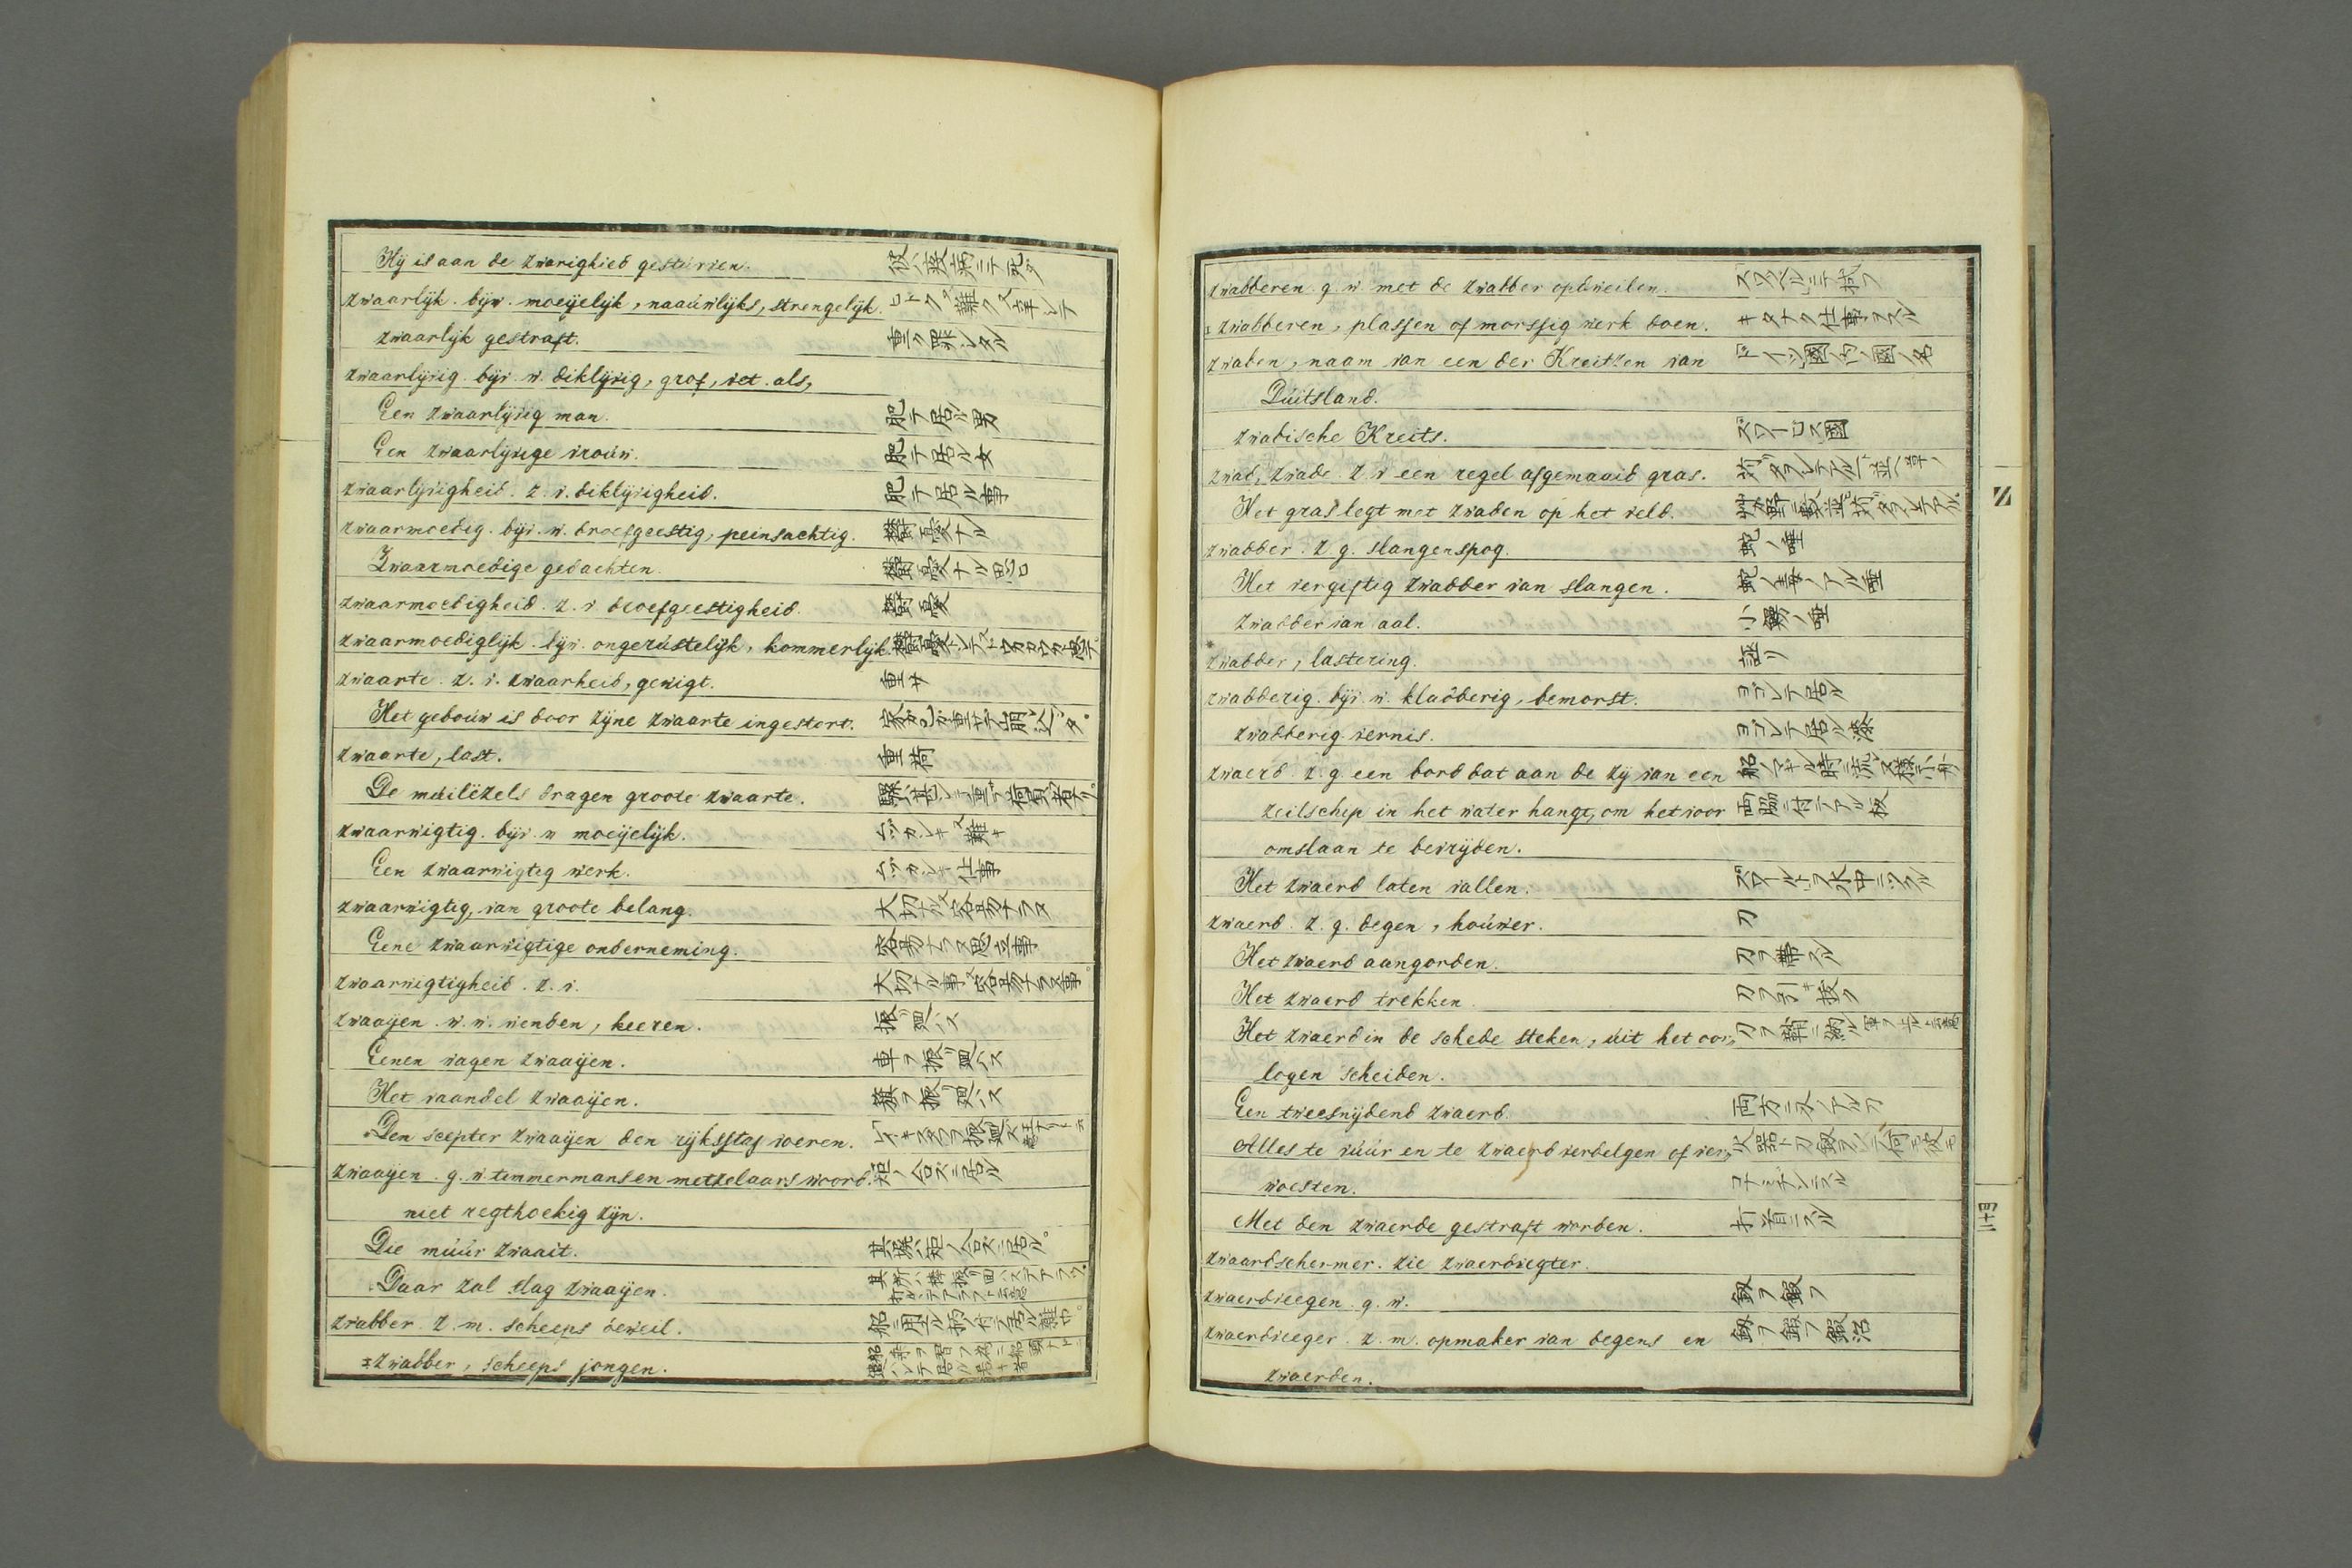 Hÿ is aan de zwarighied gestúrven. 彼ハ疫病ニテ死ダ
zwaarlÿk. bÿw. moeÿelÿk, naaúwlÿks, strengelÿk. ヒドク又難ク又辛シテ
zwaarlÿk gestraft. 重ク罪シタル
zwaarlÿvig. bÿv. w. diklÿvig, grof, vet. als,
Een zwaarlÿvig man. 肥テ居ル男
Een zwaarlÿvige vroúw. 肥テ居ル女
zwaarlÿvigheid. z. v. diklÿvigheid. 肥テ居ル事
zwaarmoedig. bÿv. w. droefgeestig, peinsachtig. 鬱憂ナル
Zwaarmoedige gedachten. 鬱憂ナル思
zwaarmoedigheid. z. v droefgeestigheid. 鬱憂
zwaarmoediglÿk. bÿw. ongerústelÿk, kommerlÿk. 鬱憂シテ
zwaarte. z. v. zwaarheid, gewigt. 重サ
Het geboúw is door zÿne zwaarte ingestort. 家ガ己ガ重サデ崩レ込ンダ。
zwaarte, last. 重荷
De múilézels dragen groote zwaarte. 騾ハ甚シキ重荷ヲ負者ナリ。
zwaarwigtig. bÿv. w moeÿelÿk. ムツカシキ又難キ
Een zwaarwigteg werk. ムツカシキ仕事
zwaarwigteg, van groote belang. 大切ナル又容易ナラヌ
Eene zwaarwigtige onderneming. 容易ナラヌ思立事
zwaarwigtigheid. z. v. 大切ナル事又容易ナラヌ事。
zwaaÿen. w. w. wenden, keeren. 振リ廻ハス
Eenen wagen zwaaÿen. 車ヲ振リ廻ハス
Het vaandel zwaaÿen. 籏ヲ振リ廻ハス
Den scepter zwaaÿen den rÿksstaf voeren.
zwaaÿen. g. w. timmermans en metzelaars woord. 矩ノ合ズニ居ル
niet regthoekig zÿn.
Die múúr zwaait. 其塀ハ矩ノ合ズニ居ル。
Daar zal slag zwaaÿen. 其所ハ棒振リ回ハスデアラフ。
zwabber. z. m. scheeps dweil. 船ニ用ル柄ノ付テ居ル雑巾。
zwabber, scheeps jongen.
zwabberen. g. w. met de zwabber opdweilen. ズワベルニテ拭フ
zwabberen, plassen of morssig werk doen. キタナク仕事ヲスル
zwaben, naam van een der Kreitsen van ドイツ國ノ内ノ國ノ名
Dúitsland.
zwabische Kreits. ズワービス國
zwad, zwade. z. v een regel afgemaaid gras.
Het gras legt met zwaden op het veld.
zwadder. z. g. slangenspog. 蛇ノ唾
Het vergiftig zwadder van slangen. 蛇ノ毒ノアル唾
zwadder van aal. 小鰻ノ唾
zwadder, lastering. 誣リ
zwadderig. bÿv. w. kladderig, bemorst. ヨゴレテ居ル
zwadderig vernis. ヨゴレテ居ル漆
zwaerd. z. g. een bord dat aan de zÿ van een
zeilschep in het water hangt, om het voor 両脇ニ付テアル板
omslaan te bevrÿden.
Het zwaerd laten vallen. ズワールドヲ水中ニツクル
zwaerd. z. g. degen, hoúwer. 刀
Het zwaerd aangorden. 刀ヲ帯スル
Het zwaerd trekken. 刀ヲ引キ抜ク
Het zwaerd in de schede steken, úit het oor, 刀ヲ鞘ニ納ル
logen scheiden.
Een tweesnÿdend zwaerd. 両方ニ刃ノアル刀
Alles te vúúr en te zwaerd verdelgen of ver,
woesten.
Met den zwaerde gestraft worden. 打首ニスル
zwaardschermer. zie zwaerdvegter.
zwaerdveegen. g. w. 釼ヲ鍛フ
zwaerdveeger. z. m. opmaker van degens en 釼ヲ鍛フ鍛冶
zwaerden.
Z